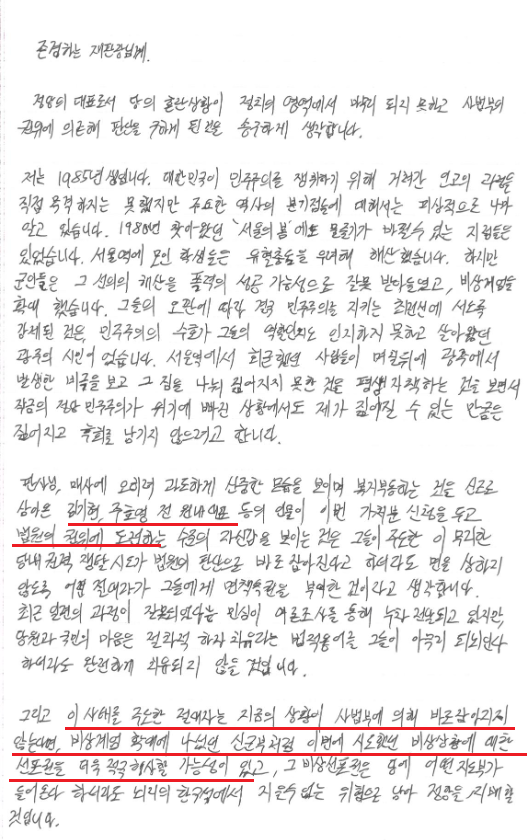 존경하는 재판장님께.
정당의 대표로서 당의 혼란상황이 정치의 영역에서 마무리 되지 못하고 사법부의
권위에 의존해 판단을 구하게 된 것을 송구하게 생각합니다.
저는 1985년생입니다. 대한민국이 민주주의를 쟁취하기 위해 거쳐간 인고의 과정을
직접 목격하지는 못했지만 주요한 역사의 분기점들에 대해서는 피상적으로 나마
알고 있습니다. 1980년 찾아왔던 '서울의 봄'에도 물줄기가 바뀔 수 있는 지점들은
있었습니다. 서울역에 모인 학생들은 유혈충돌을 우려해 해산했습니다. 하지만
군인들은 그 선의의 해산을 폭력의 성공 가능성으로 잘못 받아들였고, 비상계엄을
확대 했습니다. 그들의 오판에 따라 결국 민주주의를 지키는 최전선에 서도록
강제된 것은 민주주의의 수호가 그들의 역할인지도 인지하지 못하고 살아왔던
광주의 시민이었습니다. 서울역에서 회군했던 사람들이 며칠뒤에 광주에서
발생한 비극을 보고 그 짐을 나눠 짊어지지 못한 것을 평생 자책하는 것을 보면서
작금의 정당 민주주의가 위기에 빠진 상황에서도 제가 짊어질 수 있는 만큼은
짊어지고 후회를 남기지 않으려고 합니다.
판사님, 매사에 오히려 과도하게 신중한 모습을 보이며 복지부동하는 것을 신조로
삼아온 김기현, 주호영 전 원내대표 등의 인물이 이번 가처분 신청을 두고
법원의 권위에 도전하는 수준의 자신감을 보이는 것은 그들이 주도한 이 무리한
당내 권력 쟁탈 시도가 법원의 판단으로 바로 잡아진다고 하더라도 면을 상하지
않도록 어떤 절대자가 그들에게 면책특권을 부여한 것이라고 생각합니다.
최근 일련의 과정이 잘못되었다는 민심이 여론조사를 통해 누차 전달되고 있지만,
당원과 국민의 마음은 절차적 하자 치유라는 법적용어를 그들이 아무리 되뇌인다
하더라도 완전하게 치유되지 않을 것입니다.
그리고 이 사태를 주도한 절대자는 지금의 상황이 사법부에 의해 바로잡아지지
않는다면, 비상계엄 확대에 나섰던 신군부처럼 이번에 시도했던 비상상황에 대한
선포권을 더욱 적극 행사할 가능성이 있고, 그 비상선포권은 당에 어떤 지도부가
들어온다 하더라도 뇌리의 한구석에서 지울수 없는 위협으로 남아 정당을 지배할
것입니다.